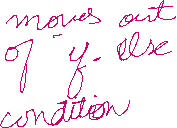 moves out
of y. else
condition